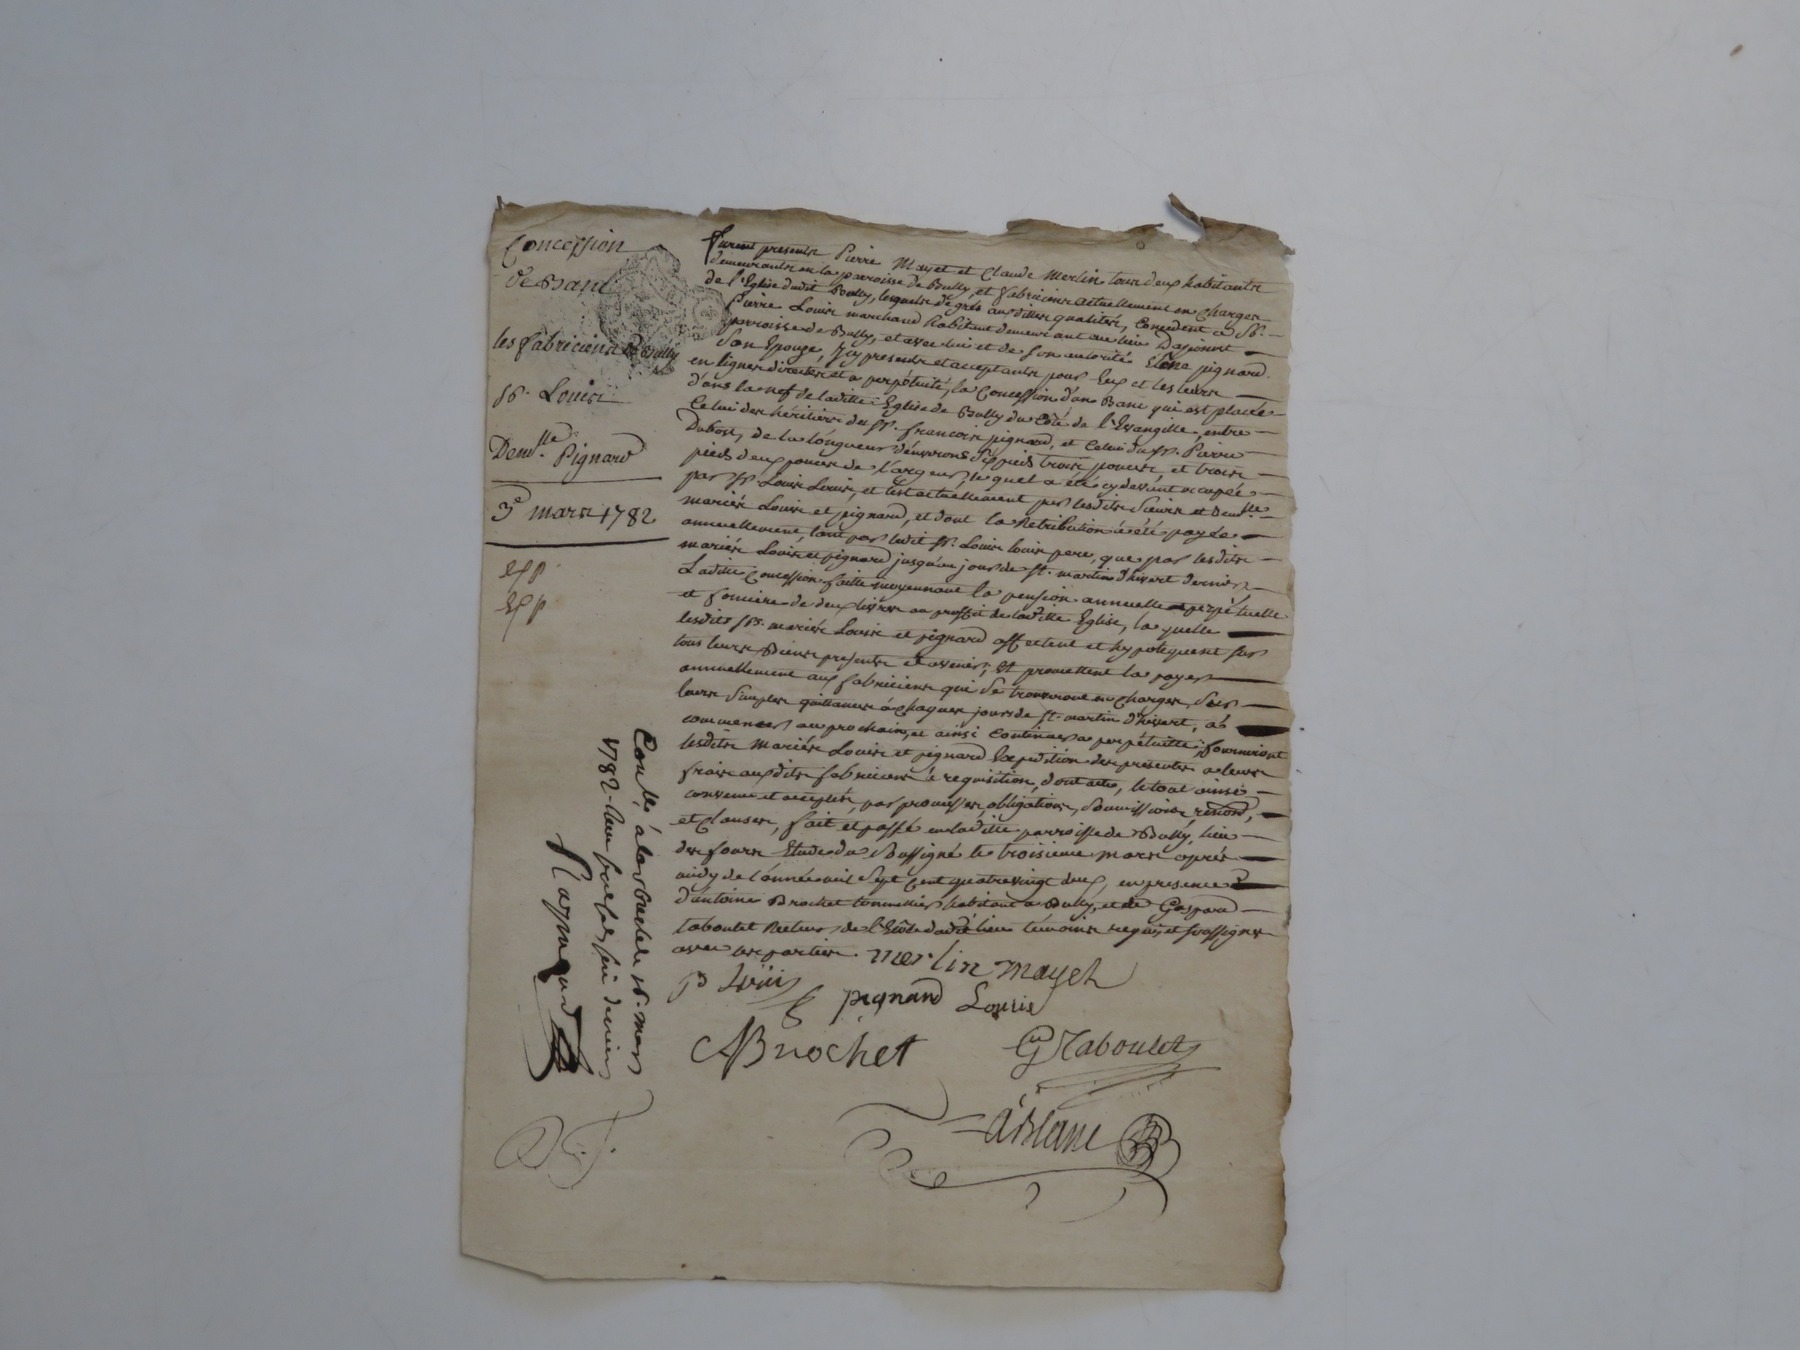 Concession
de Banc
les fabriciens de Bully
Sr. Louis
Demlle. Pignard
3e mars 1782
exp
exp
furent presents Pierre Mayet et Claude Merlin tous deux habitants
demeurants en la parroisse de Bully, et fabriciens actuellement en charges
de l'Eglise dudit Bully, lesquels de gré aux dittes qualités, Concedent a Sr.
Pierre Louis marchand habitant demeurant au lieu
parroisse de Bully, et avec lui et de son autorité Elène pignard
son Epouze, icy presents et acceptants pour Eux et les leurs
en lignes directes et a perpétuité, la Concession d'un Banc qui est placée
dans la nef de laditte Eglise de Bully du Côté de l'Evangille, entre
Celui des héritiers du Sr. francois pignard, et Celui du Sr. Pierre
Dubost, de la longueur d'environs six pieds trois pouces, et trois
pieds deux pouces de largeur, lequel a été cy devant occupée
par Sr. Louis Louis, et l'est actuellement par lesdits Sieurs et Demlle.
mariés Louis et pignard, et dont la Retribution a été payée
annuellement, tant par ledit Sr. Louis Louis pere, que par lesdits
mariés Louis et pignard jusqu'au jour de St. martin d'hivert dernier
Laditte Concession faitte moyennant la pension annuelle et perpétuelle
et fonciere de deux livres au proffit de laditte Eglise, la quelle
lesdits Srs. mariés Louis et pignard affectent et hypotequent sur
tous leurs Biens presents et avenir, et promettent la payer
annuellement aux fabriciens qui se trouveront en charges, sur
leurs simples quittances à chaques jours de St. martin d'hivert, à
commencer au prochain, et ainsi Continuer a perpétuitté; fourniront
lesdits mariés Louis et pignard Expédition des presentes a leurs
frais auxdits fabriciens à requisition, dont acte, le tout ainsi
convenu et accepté, par promesses, obligations, Soumissions, renond,
et Clauses, fait et passé en laditte parroisse de Bully, lieu
des fours Etude du Soussigné le troisieme mars après
midy de l'année mil Sept Cent quatrevingt deux, en presence
d'antoine Brochet tonnellier habitant a Bully, et de Gaspard
taboulet Recteur de l'Ecôle dudit lieu témoins requis et soussignés
avec les parties. Merlin Mayet
p Louis pignard Louis
ABrochet G Taboulet
ABlanc
Conllé, à larbrele le 16. mars
1782